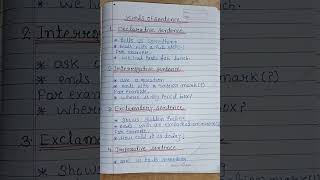 Kinds of sentence
1. Declarative sentence
* Tells us something
* ends with a full stop.
For example
* We had pasta for lunch.
2. Interrogative sentence
* ask a question
* ends with a question mark(?)
For example
* Where is my pencil box?
3. Exclamatory sentence
* Shows sudden feeling
* ends with an exclamation mark(!)
For example
* How cold it is today!
4. Imperative sentence
2. Interrog
* ask
* ends
For exam
* where
3. Exclam
* Show
mark(?)
box?